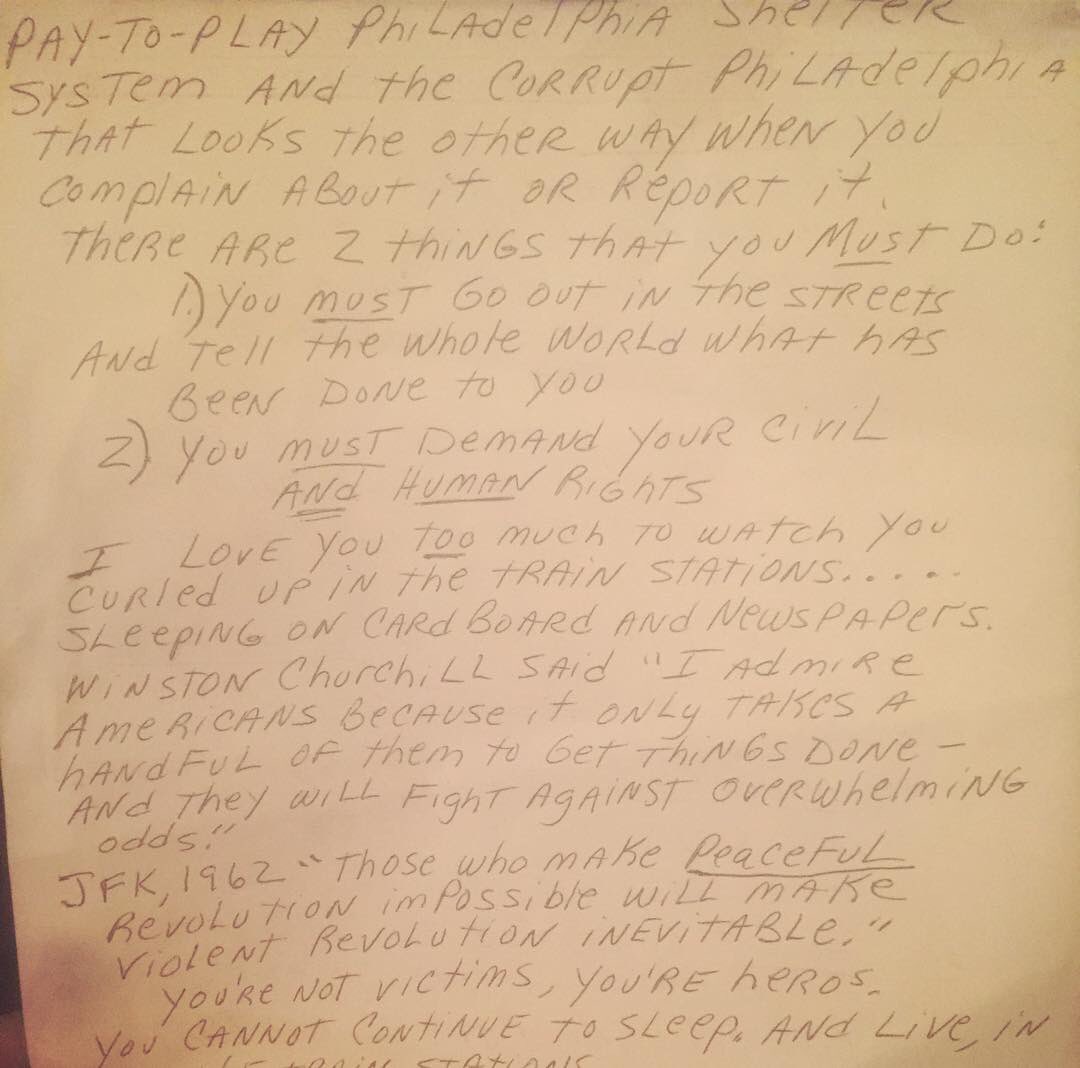 PAY-TO-PLAY PhiLAdelPhiA SheLTER
SYSTEM ANd the CORRUPT PhiLAdelphiA
THAT LOOKS the other WAY WHEN YOU
COMPLAIN ABOUT it OR REPORT it.
THERE ARE 2 thiNGS thAt you MUST DO:
1.) YOU MUST GO OUT iN the STREETS
ANd Tell the whole WORLd whAt hAS
BEEN DONE to YOU
2) YOU MUST DEMANd YOUR CiviL
ANd HUMAN RiGhTS
I LOVE YOU TOO MUCh TO WATCh YOU
CURLed UP iN the tRAiN STATiONS.....
SLeepiNG ON CARdBOARd ANd NewsPAPers.
WiNSTON ChurchiLL SAid "I AdmiRe
AmeRiCANS BeCAUSE it ONLy TAKES A
hANdFUL OF them to Get thiNGS DONE -
ANd They wiLL FighT AgAiNST OveRwhelmiNG
odds."
JFK, 1962 "Those who MAKe PeaceFUL
RevoLutiON imPossible wiLL MAKe
VioleNT RevoLutiON iNEViTABLe."
You're NOT victims, YOU'RE heROS.
YOU CANNOT CONTiNUE TO SLeep, ANd Live, iN
TRAiN STATiONS